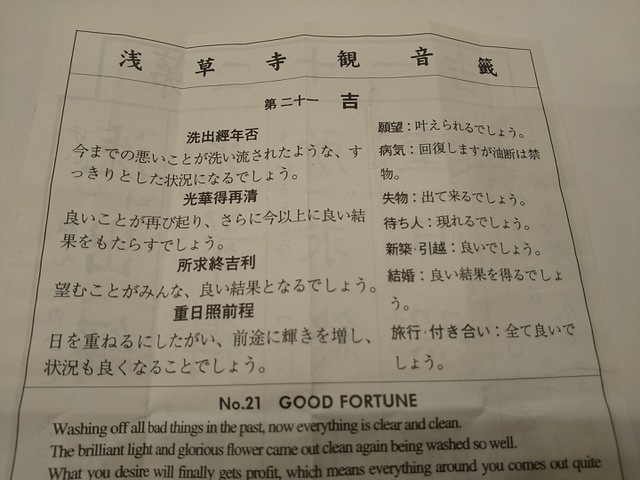 浅草寺観音籤
第二十一 吉
洗出經年否
今までの悪いことが洗い流されたような、す
っきりとした状況になるでしょう。
光華得再清
良いことが再び起り、さらに今以上に良い結
果をもたらすでしょう。
所求終吉利
望むことがみんな、良い結果となるでしょう。
重日照前程
日を重ねるにしたがい、前途に輝きを増し、
状況も良くなることでしょう。
願望：叶えられるでしょう。
病気：回復しますが油断は禁
物。
失物：出て来るでしょう。
待ち人：現れるでしょう。
新築・引越：良いでしょう。
結婚：良い結果を得るでしょ
う。
旅行・付き合い：全て良いで
しょう。
No.21 GOOD FORTUNE
Washing off all bad things in the past, now everything is clear and clean.
The brilliant light and glorious flower came out clean again being washed so well.
What you desire will finally gets profit, which means everything around you comes out quite